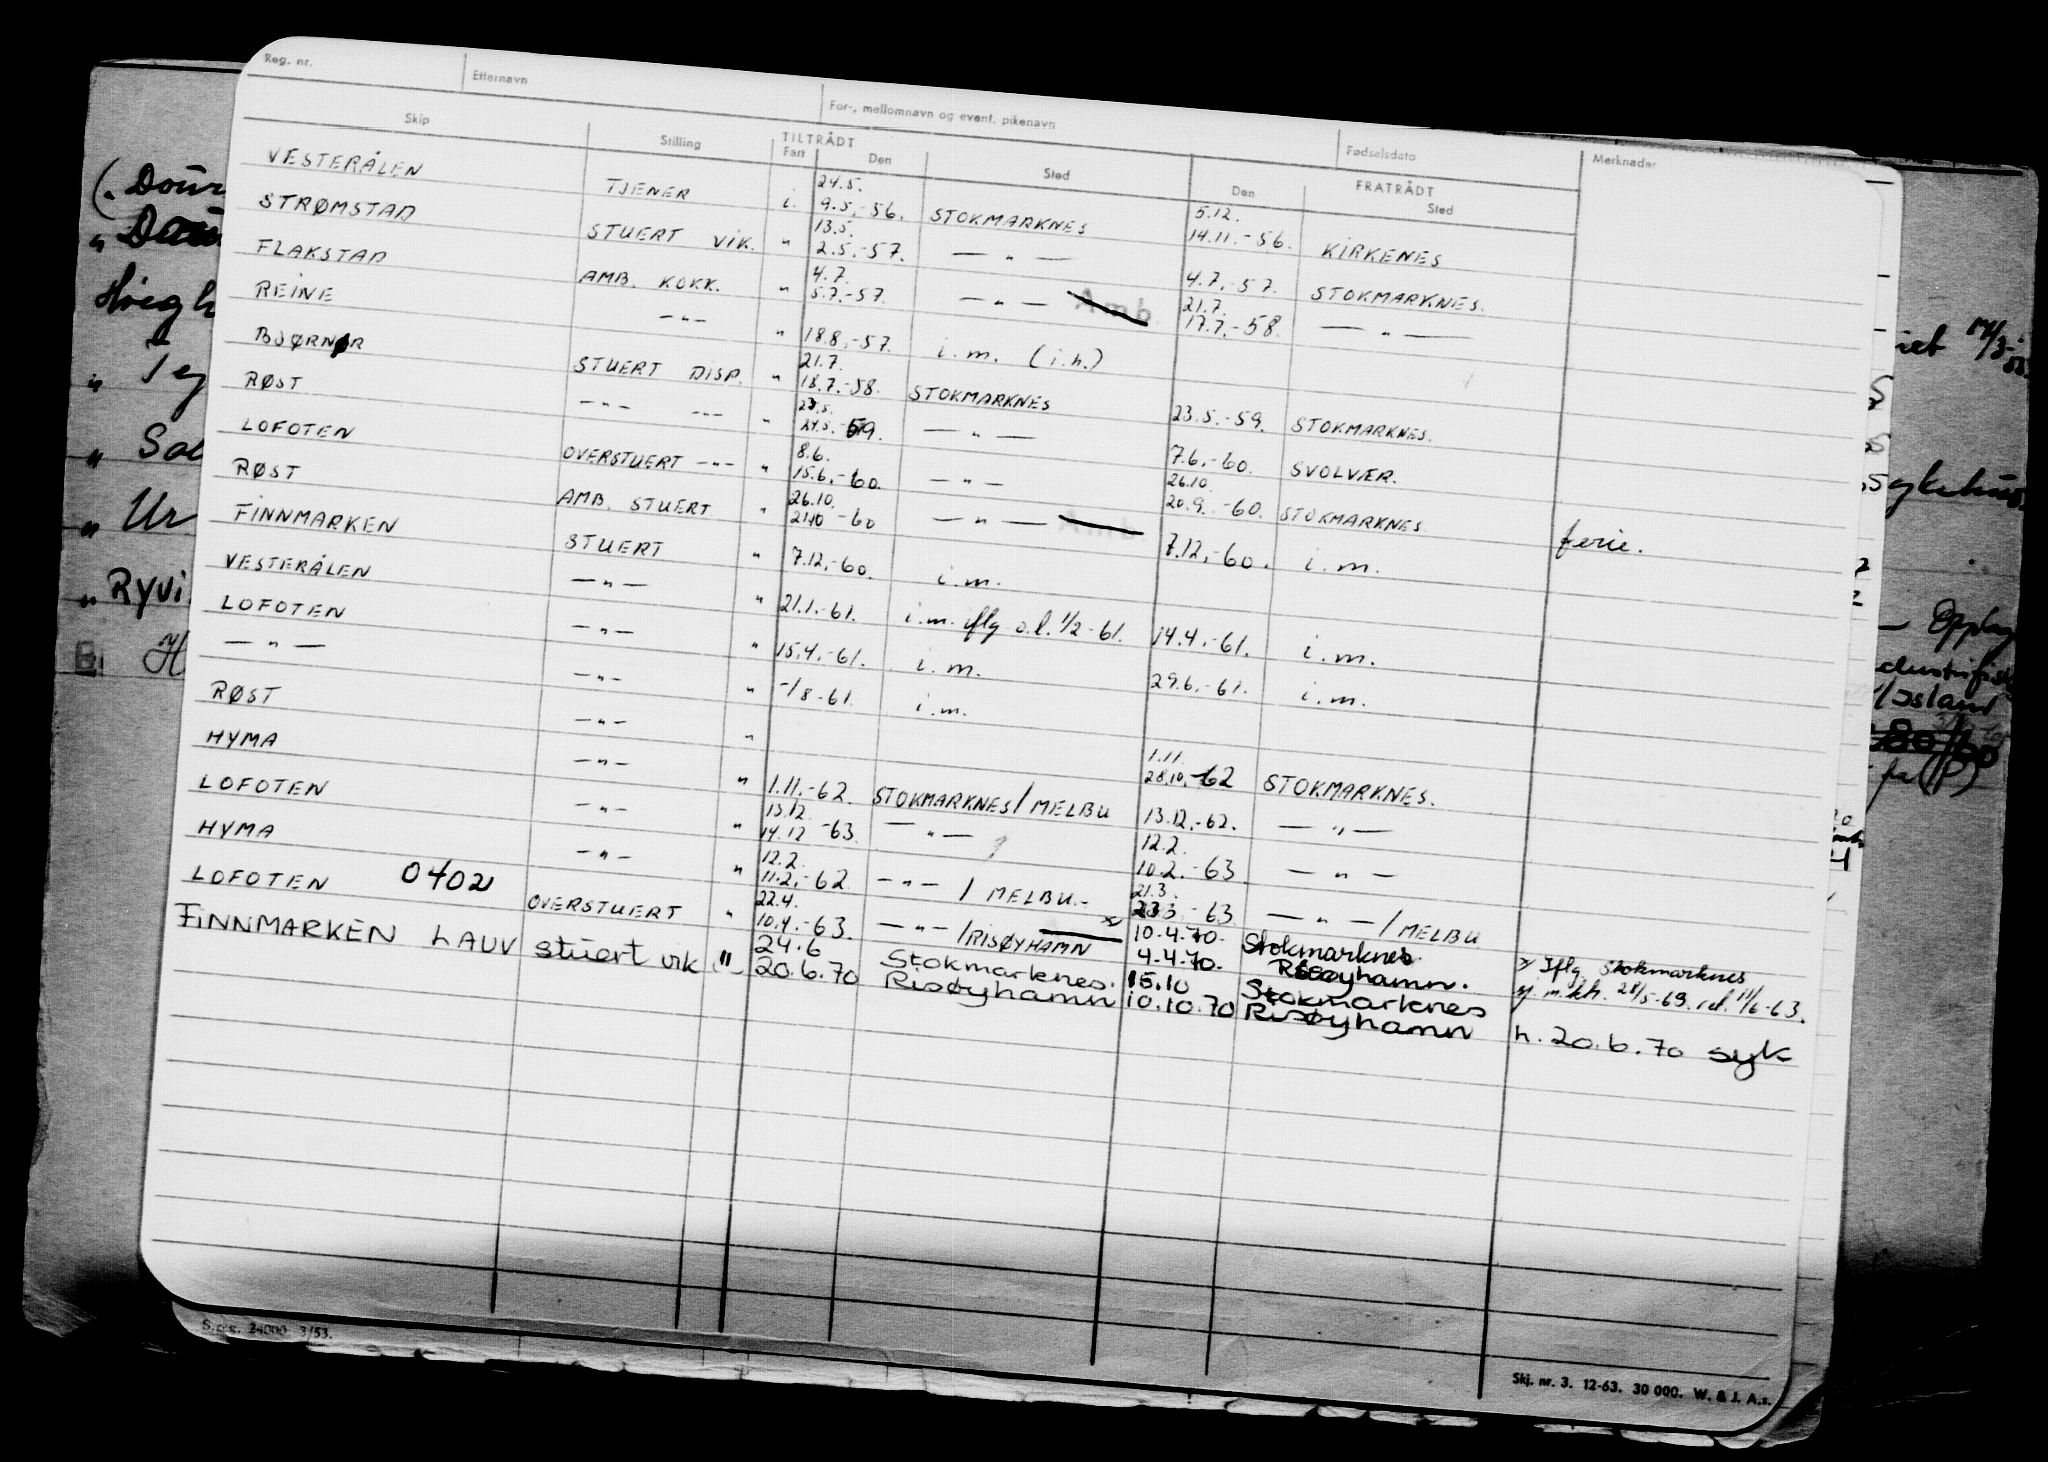 Reg. nr. Etternavn For-, mellomnavn og event. pikenavn Fødselsdato Merknader
Skip Stilling TILTRÅDT Fart Den Sted FRATRÅDT Den Sted
VESTERÅLEN TJENER i. 24.5. 9.5.-56. STOKMARKNES 5.12. 14.11.-56. KIRKENES
STRØMSTAD STUERT VIK. " 13.5. 2.5.-57. — " — 4.7.-57. STOKMARKNES.
FLAKSTAD AMB. KOKK. " 4.7. 5.7.-57. — " — Amb 21.7. 17.7.-58. — " —
REINE -"- " 18.8.-57. i.m. (i.h.)
BJØRNØR STUERT DISP. " 21.7. 18.7.-58. STOKMARKNES 23.5.-59. STOKMARKNES.
RØST -"- -"- " 23.5. 24.5.-59. — " — 7.6.-60. SVOLVÆR.
LOFOTEN OVERSTUERT -"- " 8.6. 15.6.-60. — " — 26.10. 20.9.-60. STOKMARKNES ferie.
RØST AMB. STUERT " 26.10. 21.10-60 — " — Amb 7.12.-60. i.m.
FINNMARKEN STUERT " 7.12.-60. i.m.
VESTERÅLEN — " — " 21.1.-61. i.m. iflg o.l. 1/2-61. 14.4.-61. i.m.
LOFOTEN -"- " 15.4.-61. i.m. 29.6.-61. i.m.
— " — -"- " -/8-61. i.m.
RØST -"- " 1.11. 28.10.-62 STOKMARKNES.
HYMA -"- " 1.11.-62. STOKMARKNES/MELBU 13.12.-62. — " —
LOFOTEN -"- " 13.12. 14.12-63. — " — 12.2. 10.2.-63. — " —
HYMA -"- " 12.2. 11.2.-62 -"- / MELBU.- 21.3. 23.3.-63 — " — / MELBU
LOFOTEN 0402 OVERSTUERT " 22.4. 10.4.-63. -"- /RISØYHAMN x 10.4.70. Stokmarknes. 4.4.70. Risøyhamn. x Iflg. Stokmarknes sj. m.ktr. 28/5-63. rel. 11/6-63.
FINNMARKEN LAUV stuert vik " 24.6 20.6.70 Stokmarknes. Risøyhamn 15.10 10.10.70 Stokmarknes Risøyhamn h. 20.6.70 syk
S.reg. 24000. 3/53.
Skj. nr. 3. 12-63. 30 000. W. & J. A.s.
Ryvi
Island